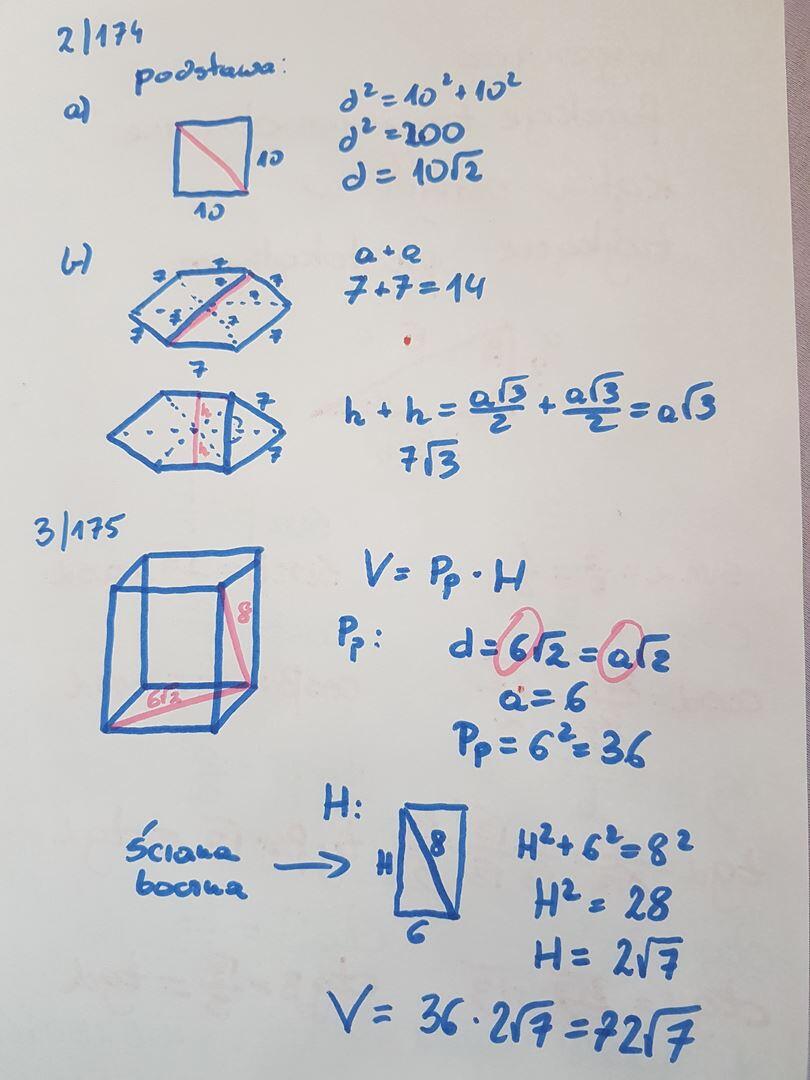 2/174
podstawa:
a)
10
10
d² = 10² + 10²
d² = 200
d = 10√2
b)
7
7
7
7
7
7
7
7
7
a + a
7 + 7 = 14
7
7
h
h
h + h = a√3/2 + a√3/2 = a√3
7√3
3/175
8
6√2
V = Pp · H
Pp:
d = 6√2 = a√2
a = 6
Pp = 6² = 36
H:
ściana
boczna
H
8
6
H² + 6² = 8²
H² = 28
H = 2√7
V = 36 · 2√7 = 72√7